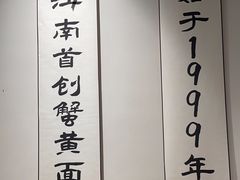 始于1999年
南首创蟹黄面